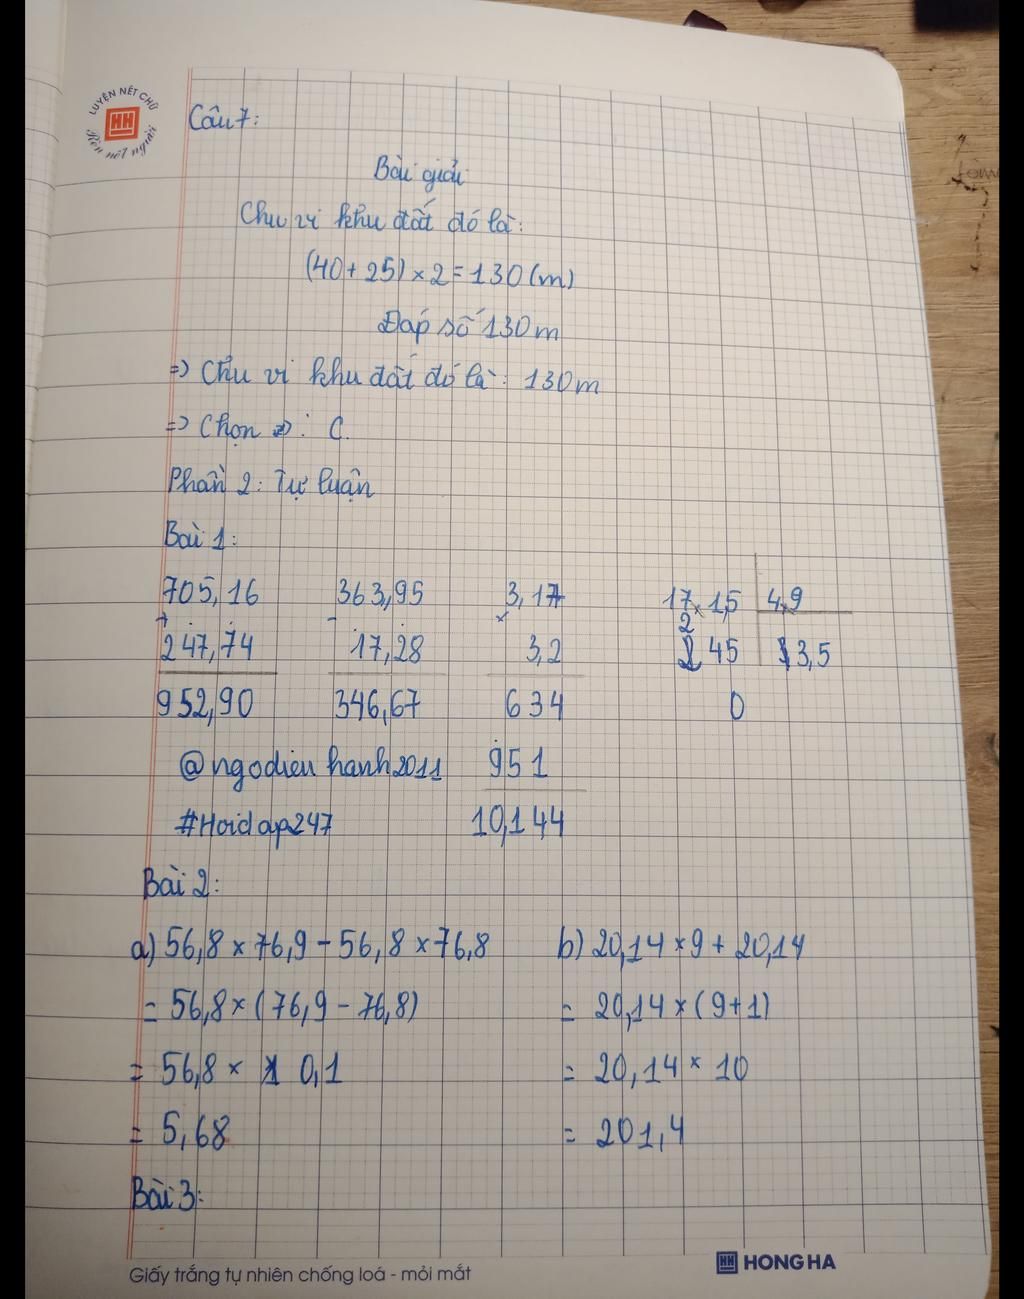 LUYỆN NÉT CHỮ
HH
Rèn nết người
Câu 7:
Bài giải
Chu vi khu đất đó là:
(40 + 25) × 2 = 130 (m)
Đáp số 130 m
=> Chu vi khu đất đó là: 130 m
=> Chọn : C.
Phần 2: Tự luận
Bài 1:
705,16 363,95 3,17 17,15 4,9
+ - ×
247,74 17,28 3,2 2 45 3,5
952,90 346,67 634 0
@ngodieu hanh2011 951
#Hoidap247 10,144
Bài 2:
a) 56,8 × 76,9 - 56,8 × 76,8 b) 20,14 × 9 + 20,14
= 56,8 × (76,9 - 76,8) = 20,14 × (9+1)
= 56,8 × 0,1 = 20,14 × 10
= 5,68 = 201,4
Bài 3:
Giấy trắng tự nhiên chống loá - mỏi mắt HH HONG HA